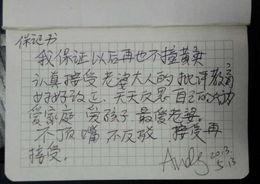 保证书
我保证以后再也不撞黄卖
认真接受老婆大人的批评教育
好好改正 天天反思自己的行动
爱家庭 爱孩子 最爱老婆。
不顶嘴 不反驳 接受再
接受。
Andy 2013.
5.13